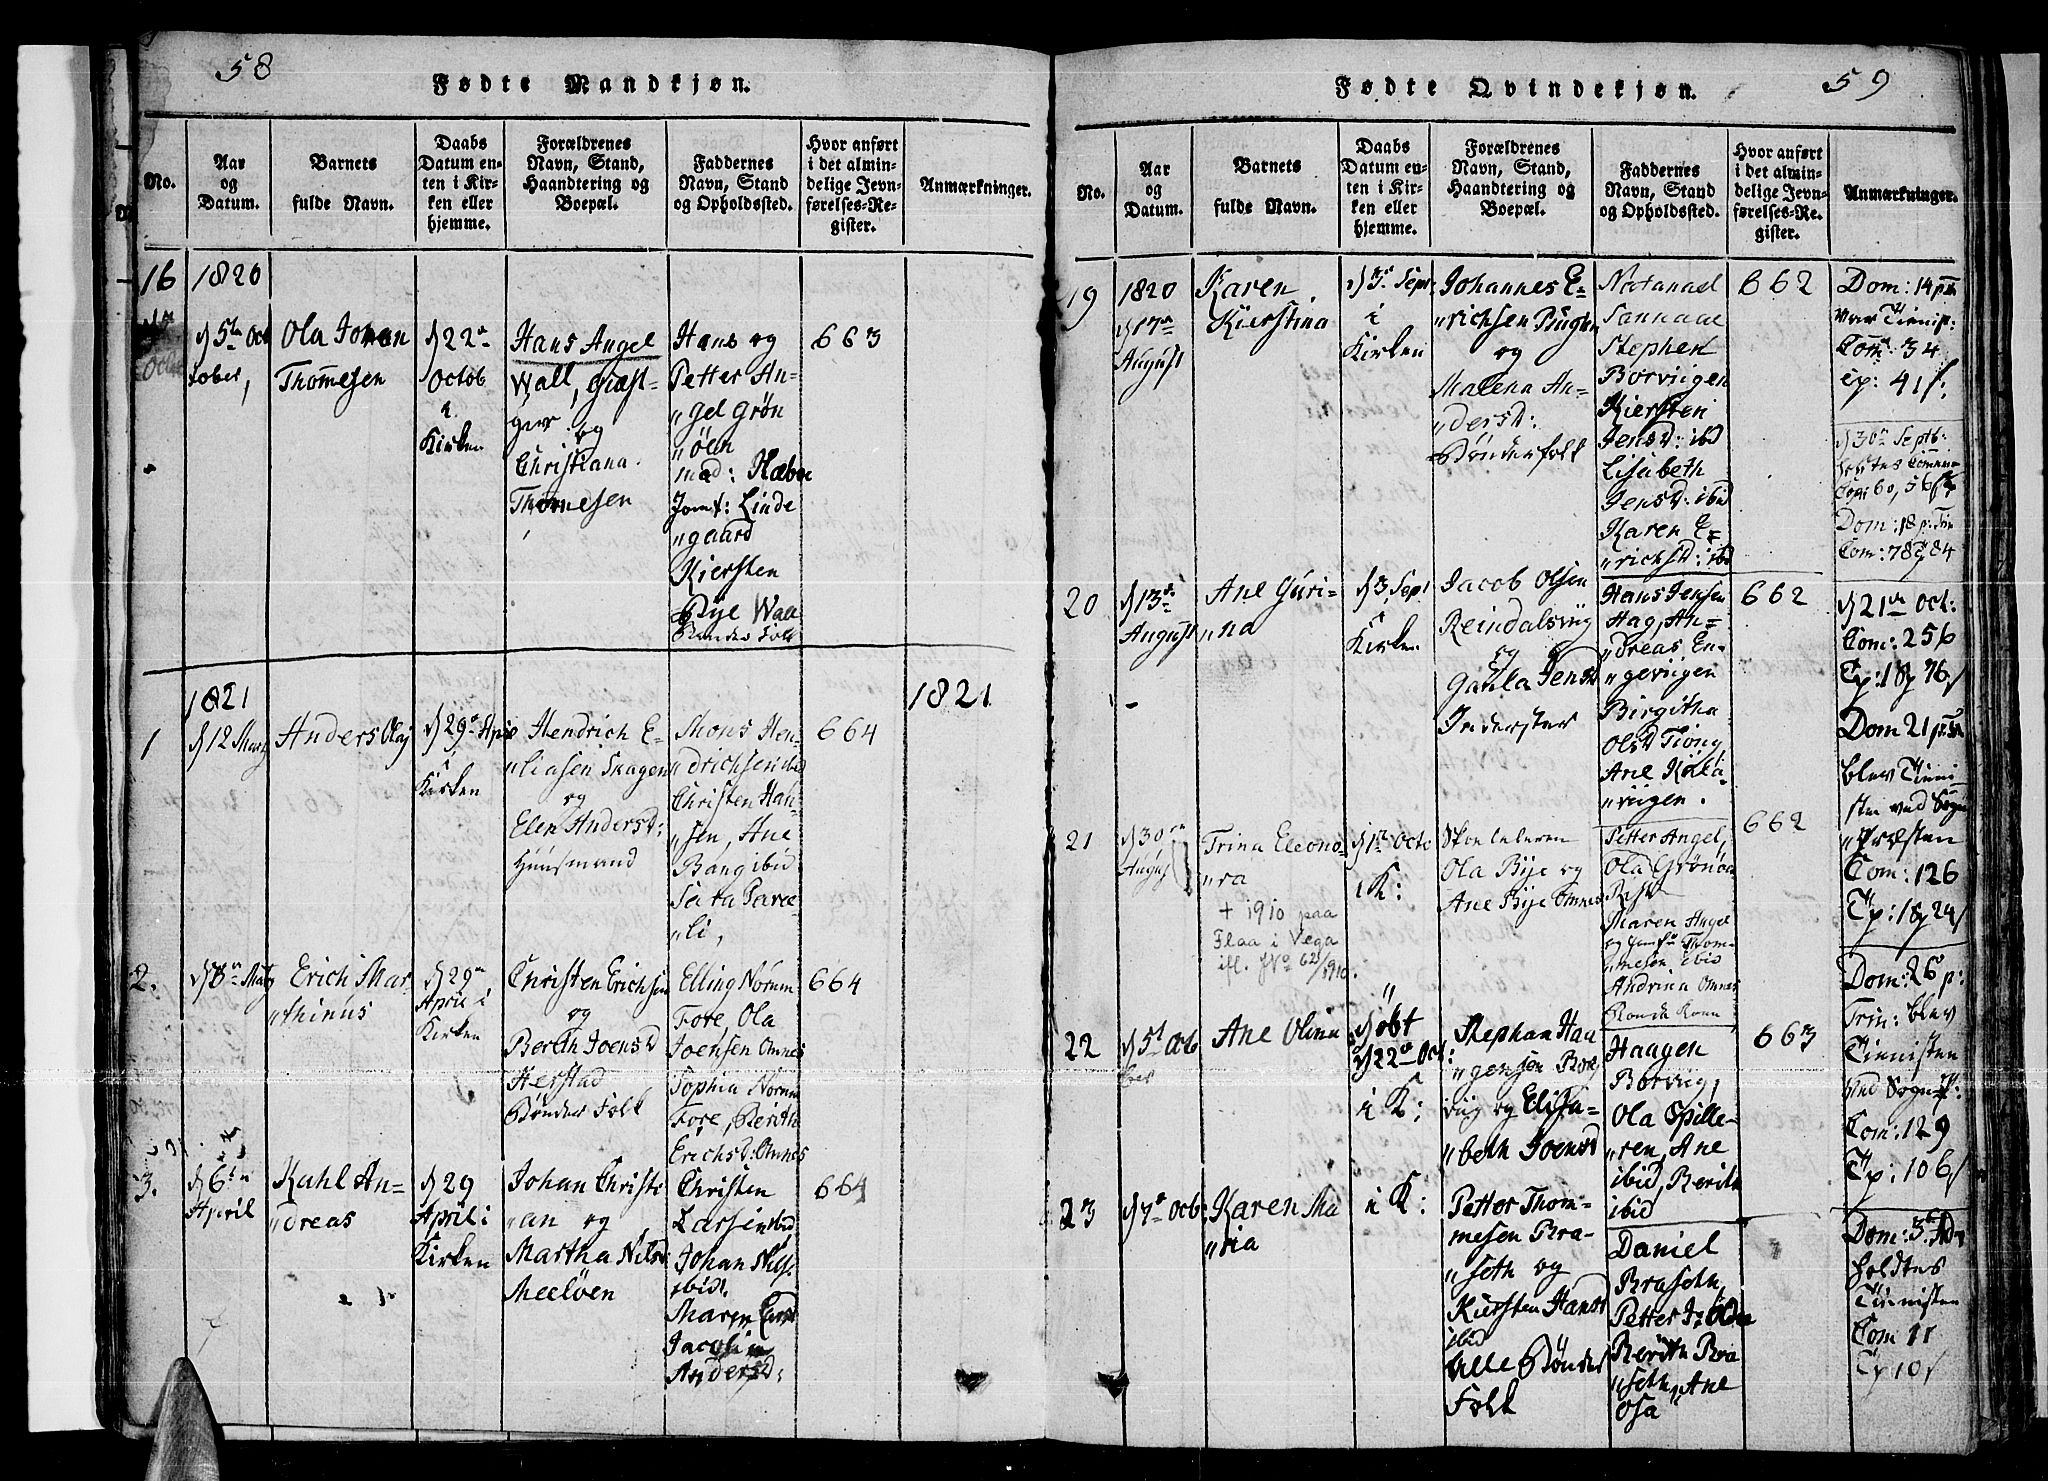 58
Fødte Mandkjøn.
No.
Aar
og
Datum.
Barnets
fulde Navn.
Daabs
Datum en-
ten i Kir-
ken eller
hjemme.
Forældrenes
Navn, Stand,
Haandtering og
Boepæl.
Faddernes
Navn, Stand
og Opholdssted.
Hvor anført
i det almin-
delige Jevn-
førelses-Re-
gister.
Anmærkninger.
16
1820
d 5te Oct
tober,
Ola Johan
Thomesen
d 22de
Octob
i
Kirken
Hans Angel
Wall, Giæst-
giver
og
Christiana
Thomesen
Hans og
Petter An-
"gel Grøn
"øen
mad: Hæbn
Jomf: Linde
"gaard
Kiersten
Bye Waa
Bønder Folk
663
1821
1821
1
d 12 Marz
Anders Olaj
d 29de April
i
Kirken
Hendrich E-
"liasen Skagen
og
Elen Andersd:
Huusmand
Mons Hen-
"drichsen ibid
Christen Han-
"sen, Ane
Bang ibid
Sara Parce-
"li,
664
2.
d 8de Martz
Erich Mar-
"thinus
d 29de
April i
Kirken
Christen Erichsen
og
Berith Joensd
Herstad
Bønder Folk
Elling Norum
Fore, Ola
Joensen Omnes
Sophia Norum
Fore, Berith
Erichsd: Omnes
664
3.
d 6te
April
Kahl An-
"dreas
d 29
April i
Kirken
Johan Christi
"an og
Martha Nilsd
Meeløen
Christen
Larsen ibid
Johan Nils:
ibid.
Maren
Jacobin
Andersd:
664
59
Fødte Qvindekjøn.
No.
Aar
og
Datum.
Barnets
fulde Navn.
Daabs
Datum en-
ten i Kir-
ken eller
hjemme.
Forældrenes
Navn, Stand,
Haandtering og
Boepæl.
Faddernes
Navn, Stand
og Opholdssted.
Hvor anført
i det almin-
delige Jevn-
førelses-Re-
gister.
Anmærkninger.
19
1820
d 17de
August
Karen
Kierstina
d 3de Sept:
i
Kirken
Johannes E-
"richsen
og
Malena An-
"dersd:
Bønderfolk
Natanael
Sannaae
Stephen
Borviigen
Kiersten
Jensd: ibd
Lisabeth
Jensd: ibid
Karen E-
"richsd: ibd
662
Dom: 14 p
var Tienist:
Com: 34
cp: 41 s:
d 30te Septb:
holdtes Commun
Dom: 18 p: Trin
Com: 78
20
d 13de
August
Ane Guri-
"na
d 3 Sept
i
Kirken
Jacob Olsen
Reindalsviig
og
Gunla Jensd
Inderster
Hans Jensen
Hag, An-
"dreas En-
"geviigen
Birgitha
Olsd Tiong
Ane Kila-
"viigen.
662
d 21de Oct:
Com: 256
Tp: 18
Dom 21 p
blev Tieni-
sten ved Sogne
"Præsten
Com: 126
Tp: 18
21
d 30te
August
Trina Eleono-
"ra
+ 1910 paa
Flaa i Vega
ifl. No 62/1910.
d 1ste Octo
i K:
Skoeleleren
Ola Bye og
Ane Bye Omnes
Petter Angel,
Ola Grønøen
Maren Angel
og Jomf: Thom-
"mesen ibid
Andrina Omnes
Bonde Kone
662
22
d 5te Octo
ber
Ane Olina
"
døbt
d 22de Oct:
i K:
Stephan Haa
"gensen Bor
viig og Elisa-
"beth Joensd
Haagen
Borviig,
Ola Spille-
"ren, Ane
ibid, Berith
ibid
663
Dom: 26 p:
Trin: blev
Tienisten
ved Sogne P:
Com: 129
Tp: 106
23
d 7de Octo
Karen Ma
"ria
i K:
Petter Thom-
mesen Bra-
"seth og
Kiersten Hansd
ibid
alle Bønder
Folk
Daniel
Braseth,
Petter
Berith Bra
"seth, Ane
Osa
Dom: 3de Adv
holdtes
Tienisten
Com 11
Tp 10